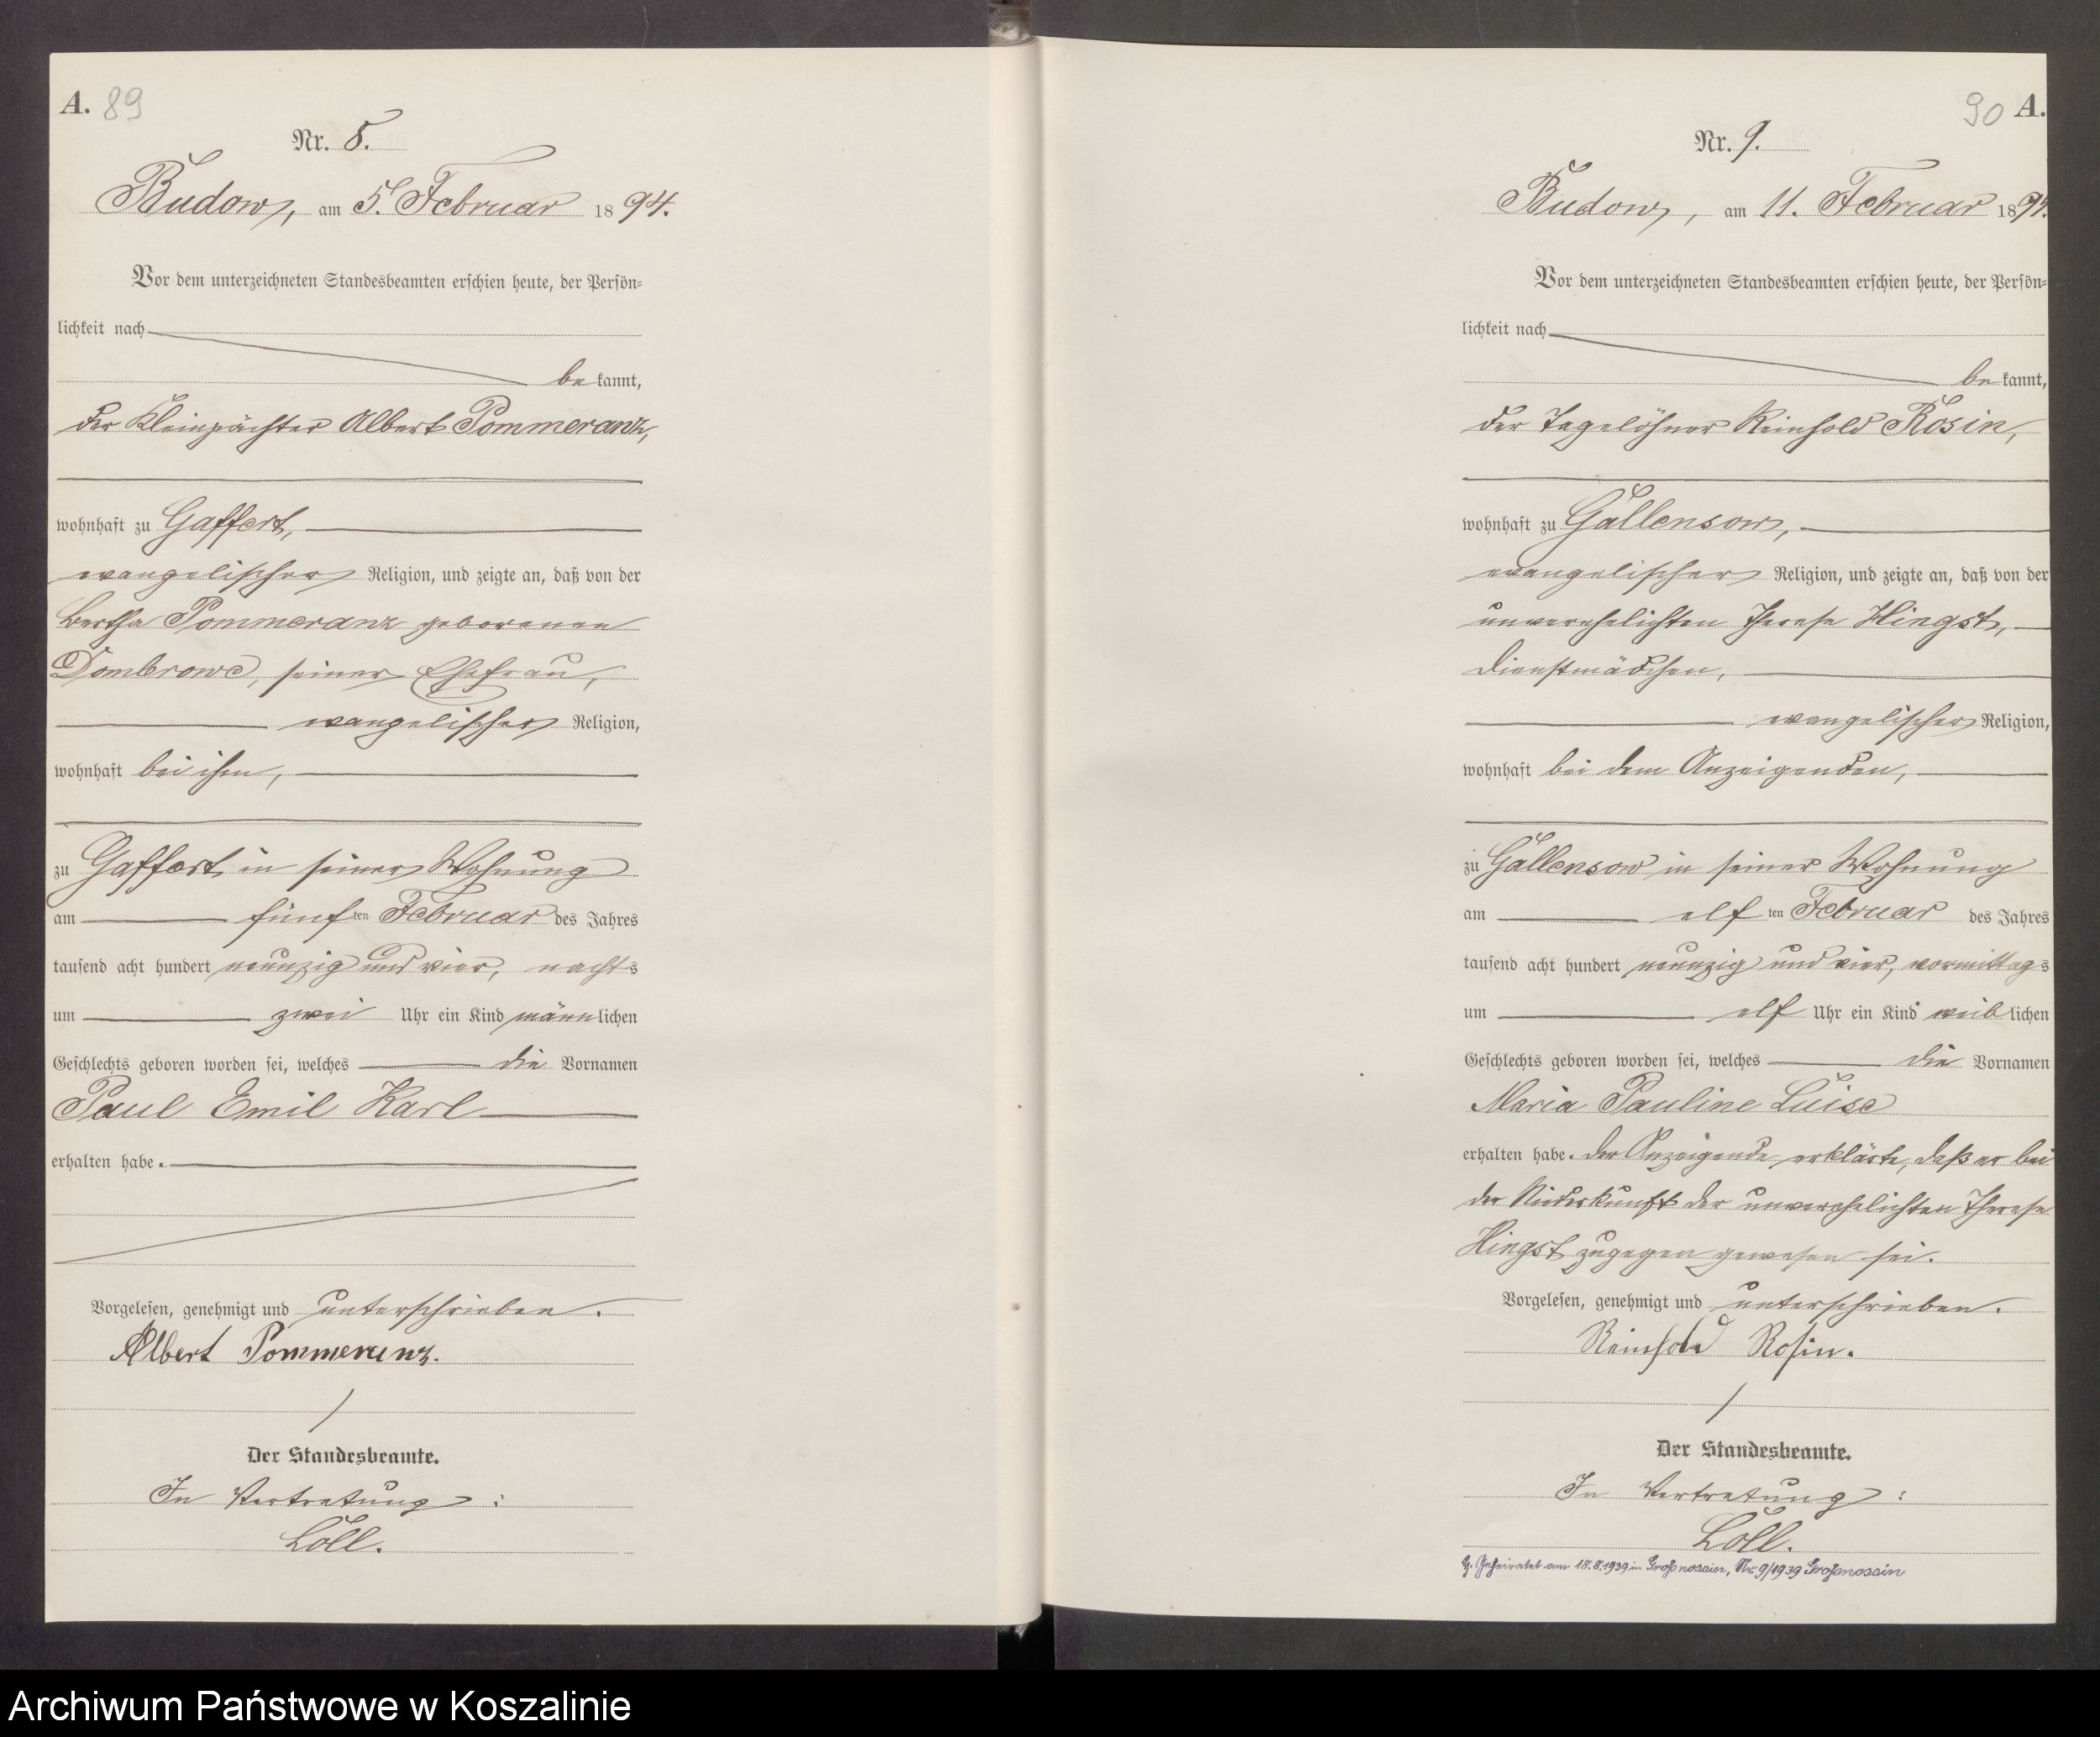 A. 89
Nr. 8.
Budow, am 5. Februar 1894.
Vor dem unterzeichneten Standesbeamten erschien heute, der Persön-
lichkeit nach
be kannt,
der Kleinpächter Albert Pommeranz,
wohnhaft zu Gaffert,
evangelischer Religion, und zeigte an, daß von der
Bertha Pommeranz geborenen
Dombrowe, seiner Ehefrau,
evangelischer Religion,
wohnhaft bei ihm,
zu Gaffert in seiner Wohnung
am fünf ten Februar des Jahres
tausend acht hundert neunzig und vier, nachts
um zwei Uhr ein Kind männlichen
Geschlechts geboren worden sei, welches die Vornamen
Paul Emil Karl
erhalten habe.
Vorgelesen, genehmigt und unterschrieben.
Albert Pommeranz.
Der Standesbeamte.
In Vertretung:
Löll.
90 A.
Nr. 9.
Budow, am 11. Februar 1894.
Vor dem unterzeichneten Standesbeamten erschien heute, der Persön-
lichkeit nach
be kannt,
der Tagelöhner Reinhold Rosin,
wohnhaft zu Gallensow,
evangelischer Religion, und zeigte an, daß von der
unverehelichten Therese Hingst,
Dienstmädchen,
evangelischer Religion,
wohnhaft bei dem Anzeigenden,
zu Gallensow in seiner Wohnung
am elf ten Februar des Jahres
tausend acht hundert neunzig und vier, vormittags
um elf Uhr ein Kind weiblichen
Geschlechts geboren worden sei, welches die Vornamen
Maria Pauline Luise
erhalten habe. Der Anzeigende erklärte, daß er bei
der Niederkunft der unverehelichten Therese
Hingst zugegen gewesen sei.
Vorgelesen, genehmigt und unterschrieben.
Reinhold Rosin.
Der Standesbeamte.
In Vertretung:
Löll.
Geheiratet am 18.8.1939 in Großnossin, Nr. 9/1939 Großnossin
Archiwum Państwowe w Koszalinie